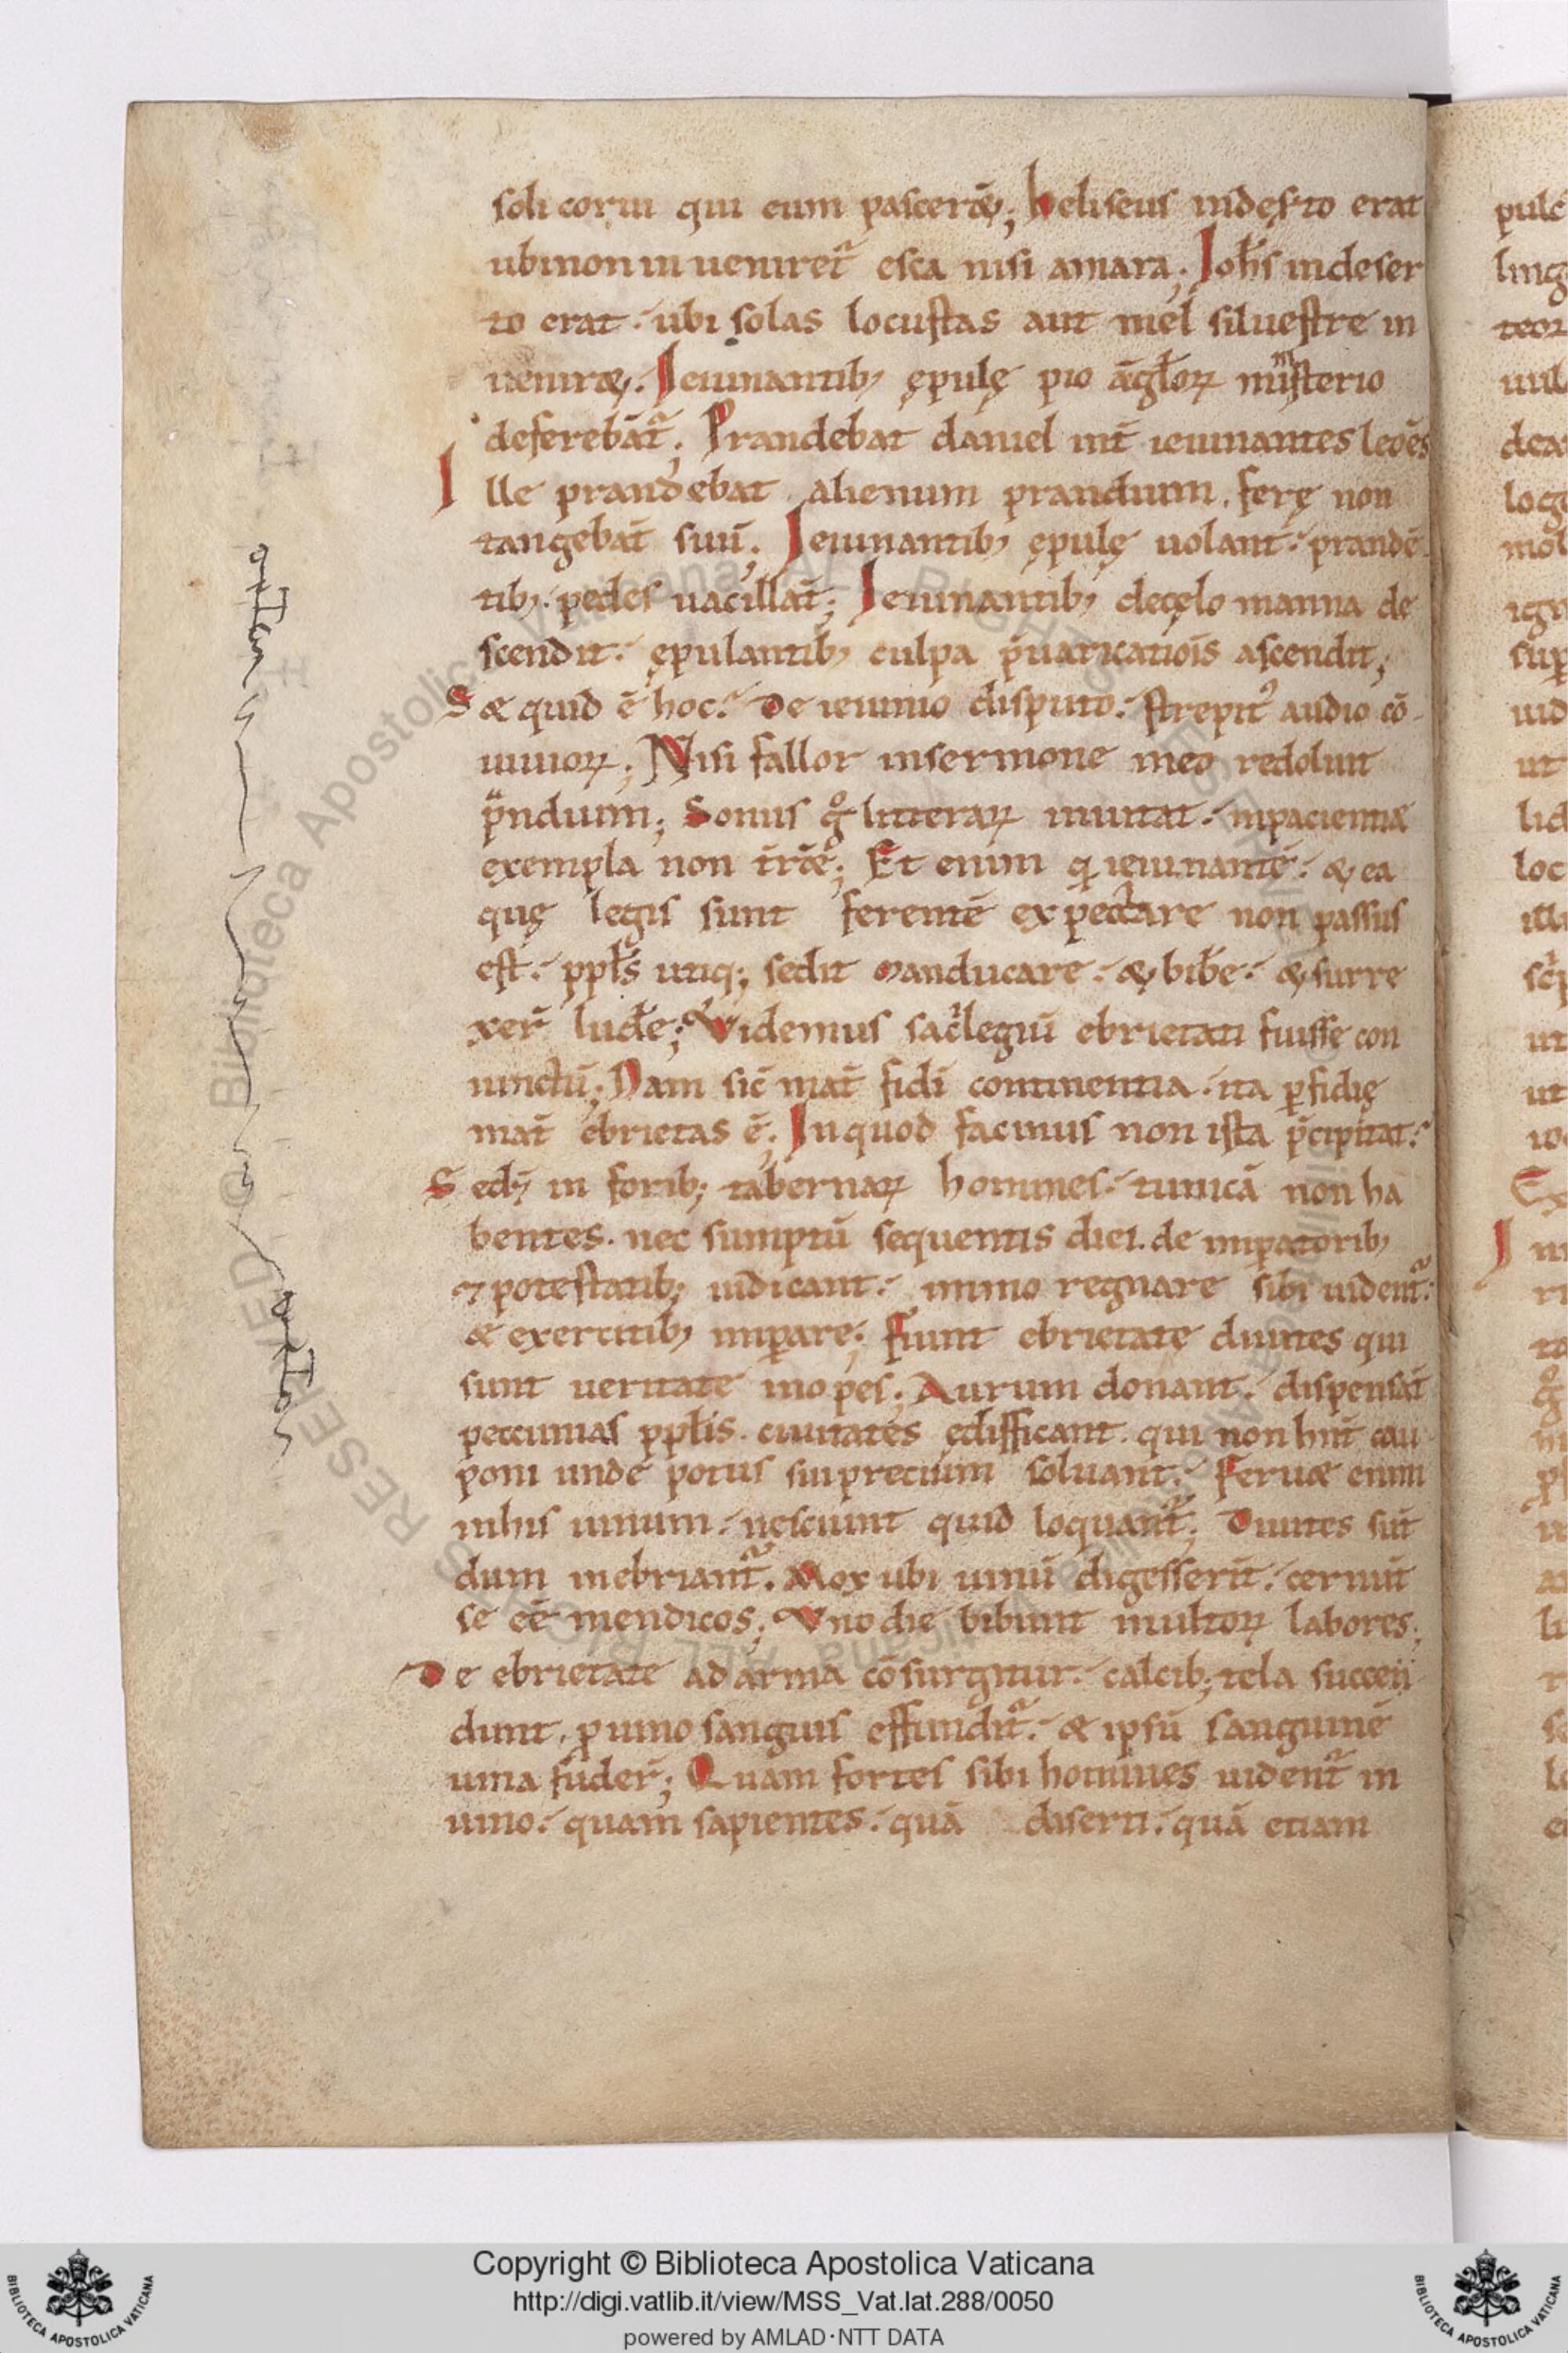 soli corui qui eum pascerẽt; heliseus indeserto erat
ubinoninueniret᷑ esca nisi amara; Joh̃s indeser
to erat. ubi solas locustas aut mel siluestre in
ueniret. Ieiunantib; ępulę pio ãgl̃oꝝ ministerio
deferebãt᷑; Prandebat daniel int̃ ieiunantes leoẽs
Ille prandebat alienum prandium. ferę non
tangebãt suũ; Ieiunantib; ępulę uolant. prandẽ
tib; pedes uacillãt; Ieiunantib; decęlo manna de
scendit. ępulantib; culpa p̃uaricatiõis ascendit;
Set quid ẽ hoc. De ieiunio disputo. strepit᾽ audio cõ
uiuioꝝ; Nisi fallor insermone meo redoluit
p̃ndium; Sonus g̊ litteraꝝ inuitat. inpacientiæ
exempla non t̃rẽt; Et enim q ieiunantẽ. & ea
quę legis sunt ferentẽ expectare non passus
est. ppl̃s utiq; sedit manducare. & bib̃e. & surre
xer̃ lud̃e; Videmus sacͥlegiũ ebrietati fuisse con
iunctũ; Nam sic̃ mat̃ fidi continentia. ita ꝑfidię
mat̃ ebrietas ẽ; In quod facinus non ista p̃cipitat.
Sed; in forib; tabernaꝝ homines. tunicã non ha
bentes. nec sumptũ sequentis diei. de imꝑatorib;
⁊ potestatib; iudicant. immo regnare sibi uident᷑.
& exercitib; imꝑare; Fiunt ebrietate diuites qui
sunt ueritate inopes; Aurum donant. dispensãt
peccunias ppl̃is. ciuitates ędifficant. qui non hñt cau
poni unde potus sui precium soluant. Feruæ enim
inhis uinum. nesciunt quid loquant᷑; Diuites sũt
dum inebriant᷑. Mox ubi uinũ digesserit̃. cernũt
se eẽ mendicos; Vno die bibunt multoꝝ labores;
De ebrietate ad arma cõsurgitur. calcib; tela succen
dunt. ꝑ uino sanguis effundit᷑. & ipsũ sanguinẽ
uina fuder̃; Quam fortes sibi homines uident᷑ in
uino. quam sapientes. quã diserti. quã etiam
Copyright © Biblioteca Apostolica Vaticana
http://digi.vatlib.it/view/MSS_Vat.lat.288/0050
powered by AMLAD·NTT DATA
BIBLIOTECA APOSTOLICA VATICANA
BIBLIOTECA APOSTOLICA VATICANA